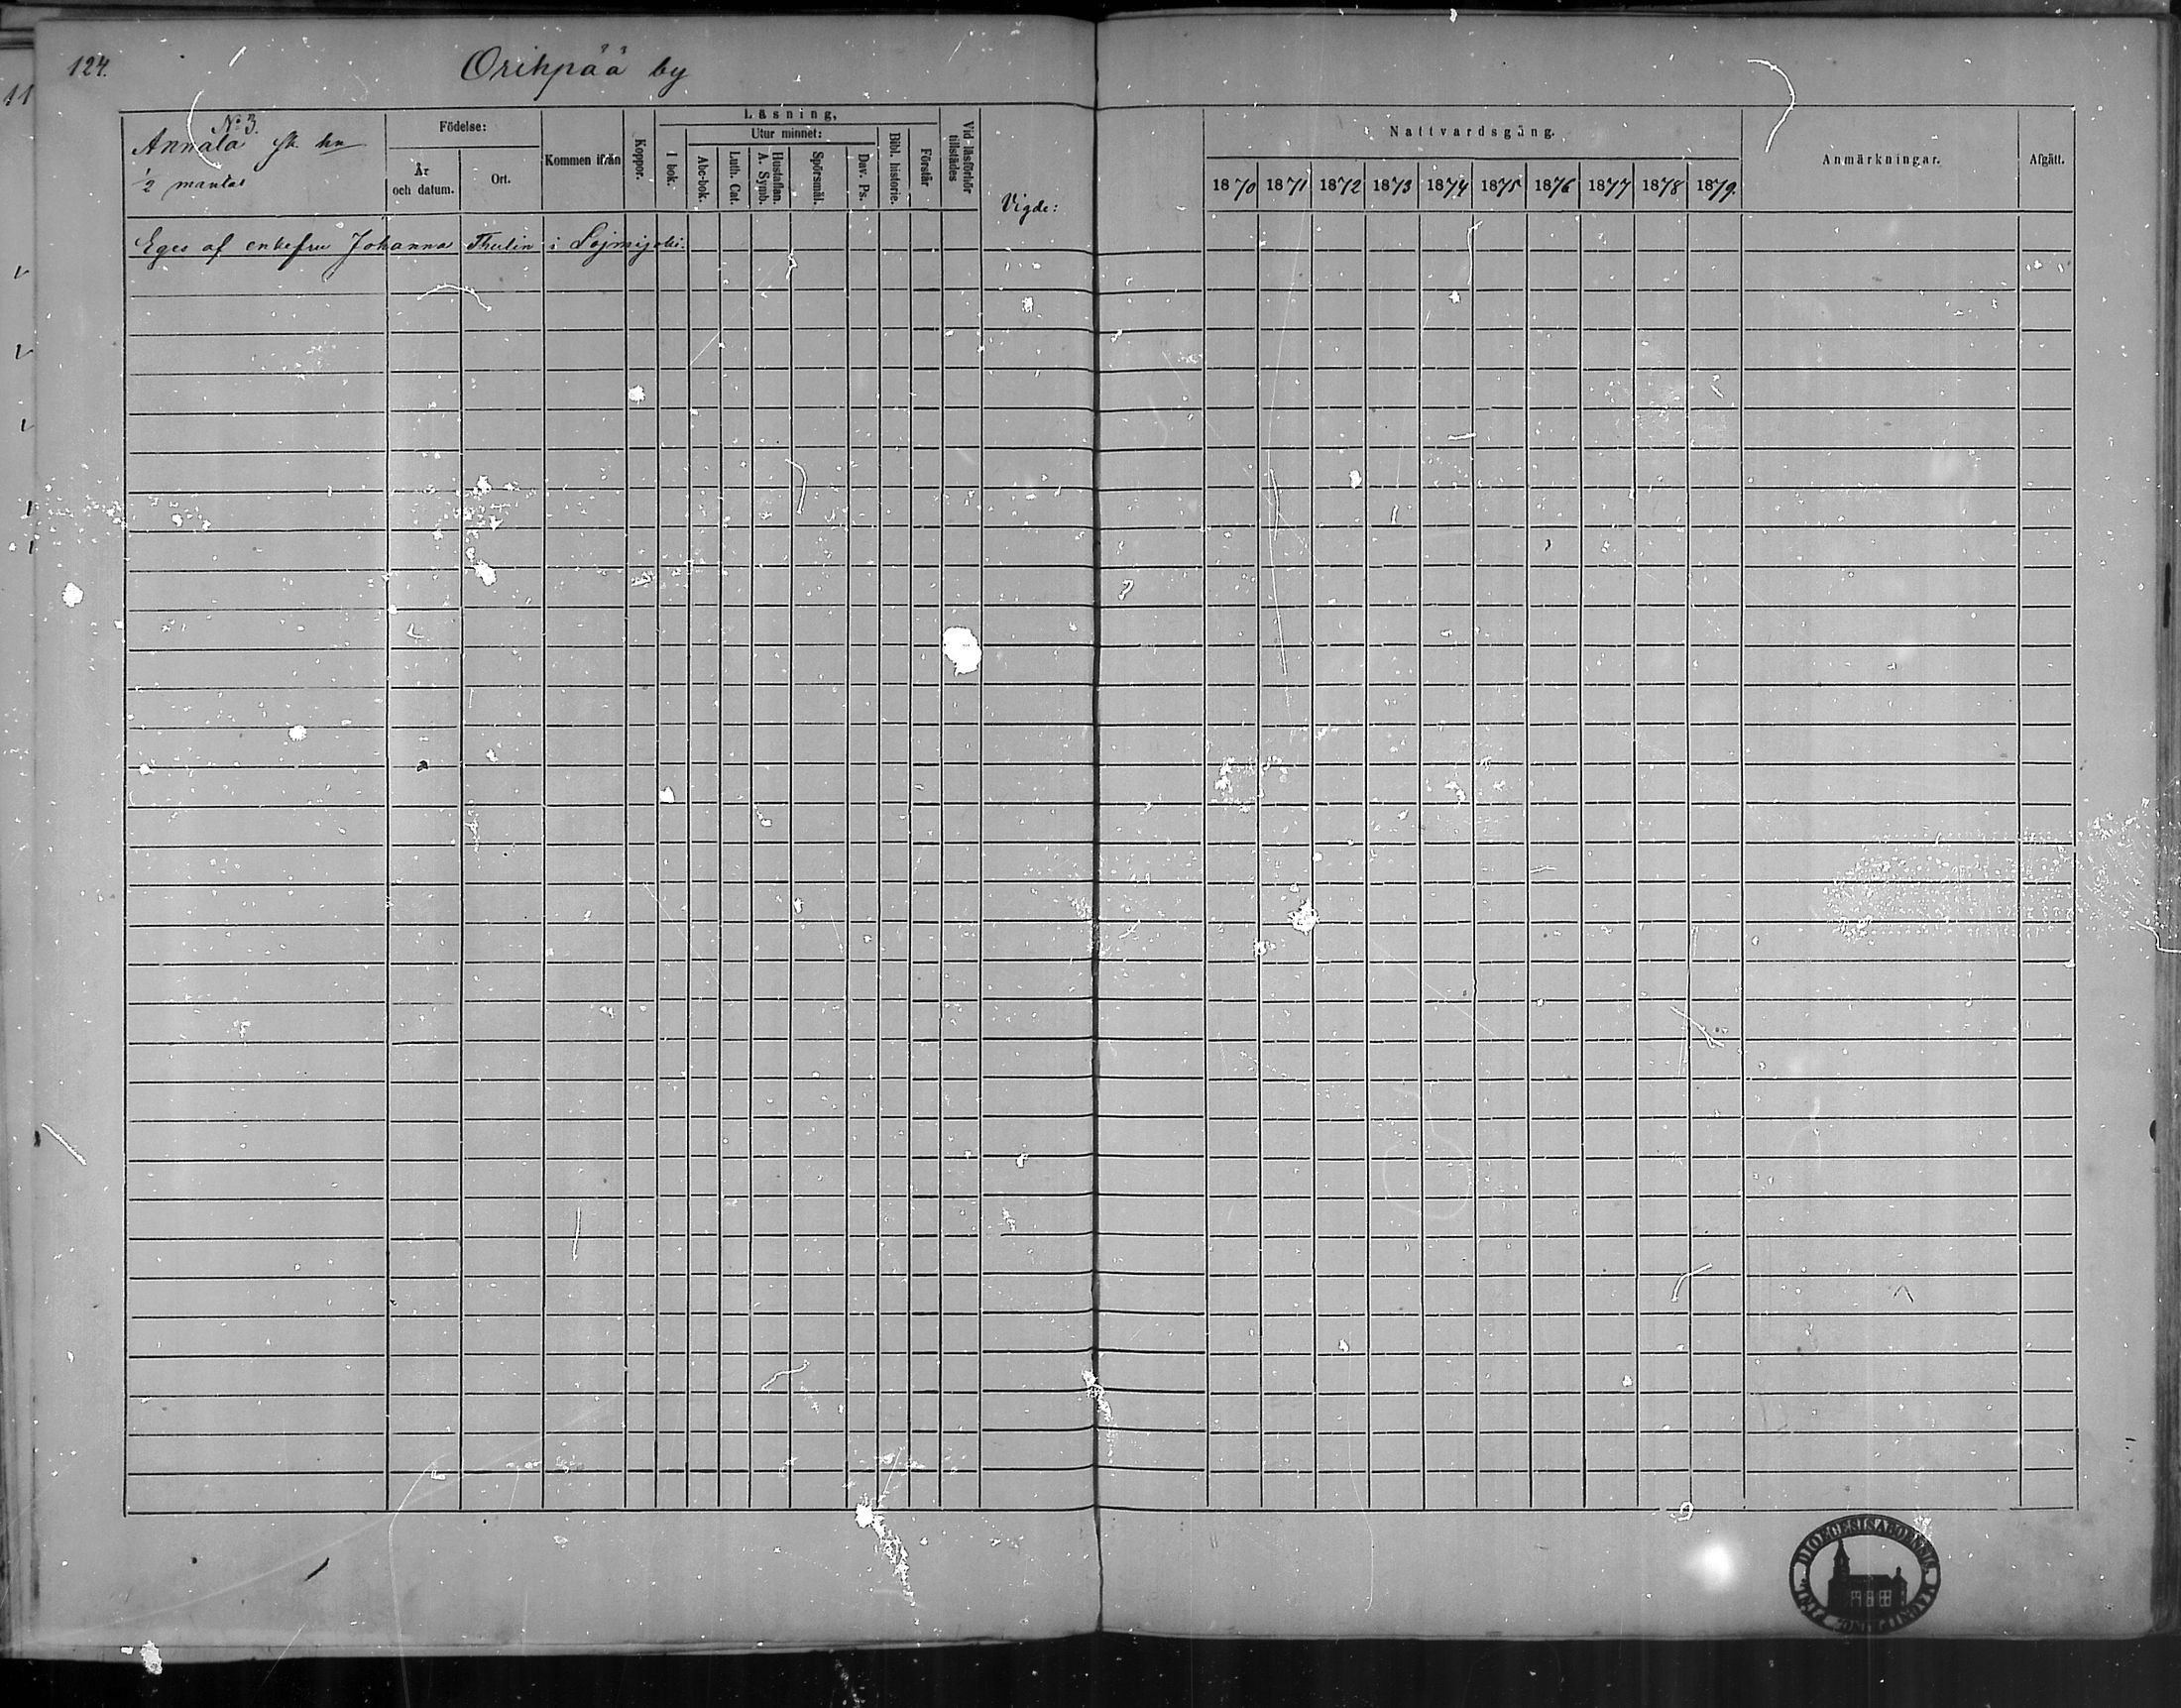 124.
Orihpää by
11
No 3.
Annala sk. hn
1/2 mantal
Födelse:
År
och datum.
Ort.
Kommen ifrån
Koppor.
Läsning,
I bok.
Utur minnet:
Abc-bok.
Luth. Cat.
Hustaflan.
A. Symb.
Spörsmål.
Dav. Ps.
Bibl. historie.
Förstår
Vid läsförhör
tillstädes
Vigde:
Nattvardsgång.
1870 1871 1872 1873 1874 1875 1876 1877 1878 1879.
Anmärkningar.
Afgått.
Eges af enkefru Johanna Thulin i Lojmijoki.
DIOECESIS ABOENSIS